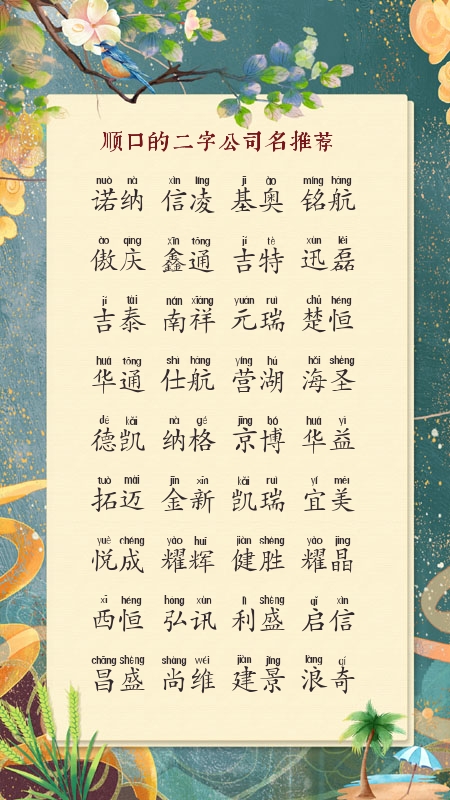 顺口的二字公司名推荐
nuò nà xìn líng jī ào míng háng
诺纳 信凌 基奥 铭航
ào qìng xīn tōng jí tè xùn lěi
傲庆 鑫通 吉特 迅磊
jí tài nán xiáng yuán ruì chǔ héng
吉泰 南祥 元瑞 楚恒
huá tōng shì háng yíng hú hǎi shèng
华通 仕航 营湖 海圣
dé kǎi nà gé jīng bó huá yì
德凯 纳格 京博 华益
tuò mài jīn xīn kǎi ruì yí měi
拓迈 金新 凯瑞 宜美
yuè chéng yào huī jiàn shèng yào jīng
悦成 耀辉 健胜 耀晶
xī héng hóng xùn lì shèng qǐ xìn
西恒 弘讯 利盛 启信
chāng shèng shàng wéi jiàn jǐng làng qí
昌盛 尚维 建景 浪奇